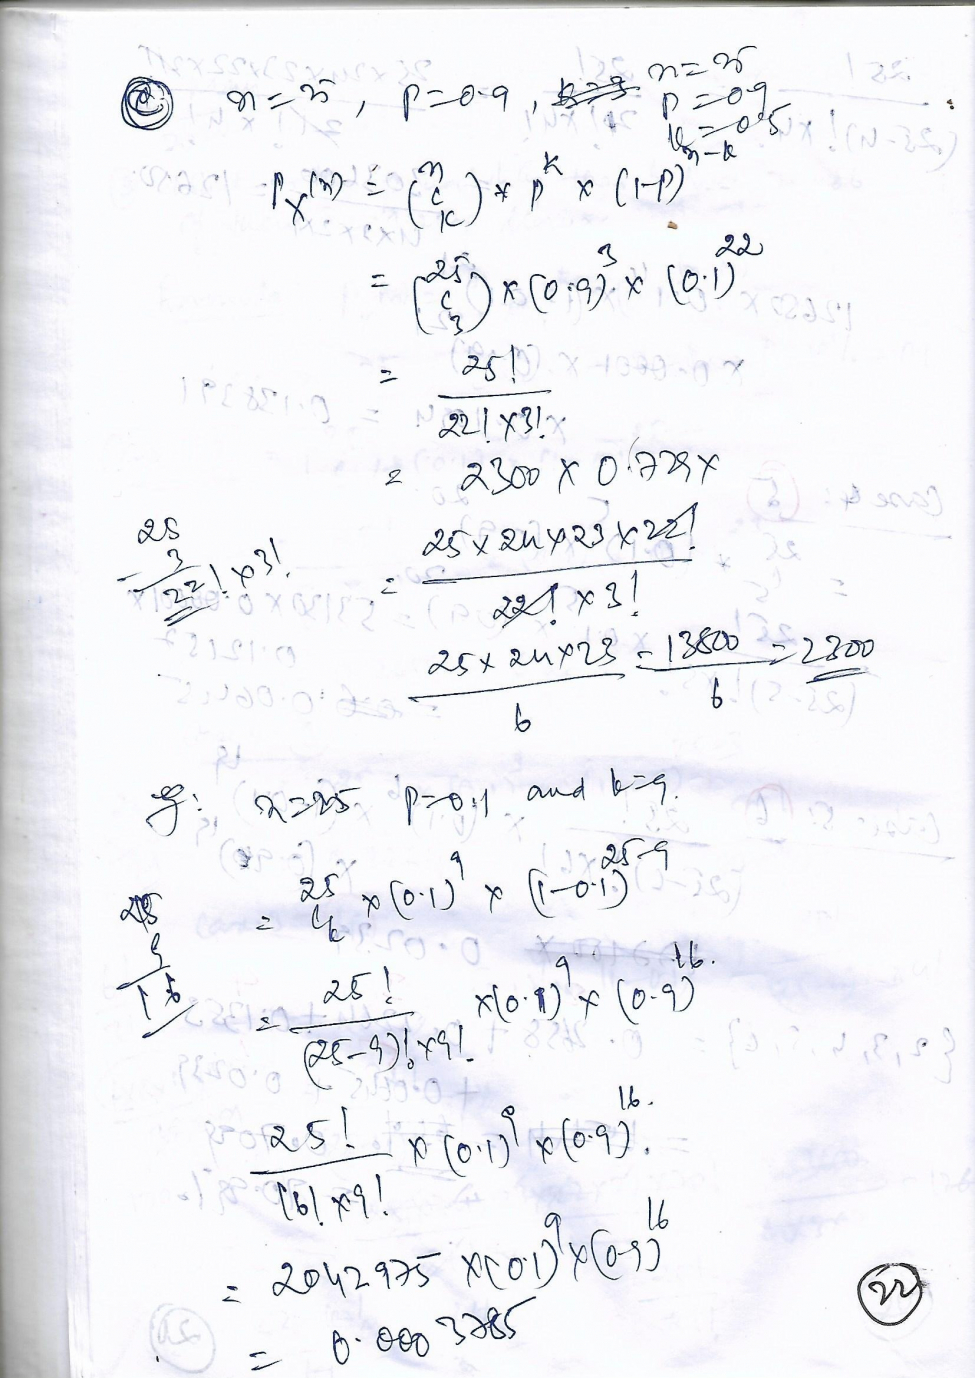 ② n=25, p=0.9,
n=25
p=0.9
k=0.5
P_X(n) = (n c k) * p^k × (1-p)^n-k
= (25 c 3) × (0.9)^3 × (0.1)^22
= 25! / 22! × 3!
= 2300 × 0.729 ×
25
3
22! × 3!
= 25 × 24 × 23 × 22! / 22! × 3!
25 × 24 × 23 / 6 = 13800 / 6 = 2300
If: n=25 p=0.1 and k=9.
= 25 c k × (0.1)^9 × (1-0.1)^25-9
25
9
16
= 25! / (25-9)! × 9! × (0.1)^9 × (0.9)^16.
25! / 16! × 9! × (0.1)^9 × (0.9)^16.
= 2042975 × (0.1)^9 × (0.9)^16
= 0.0003785
22